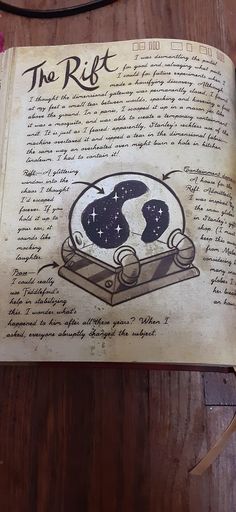 The Rift
I was dismantling the portal
for good and salvaging what parts
I could for future experiments when I
made a horrifying discovery. Although
I thought the dimensional gateway was permanently closed, I
at my feet a small tear between worlds, sparking and hovering a foot
above the ground. In a panic, I scooped it up in a mason jar like
it was a mosquito, and was able to create a temporary containment
unit. It is just as I feared: apparently, Stanley's reckless use of the
machine overtaxed it and ripped a tear in the dimensional fabric
the same way an overheated oven might burn a hole in kitchen
linoleum. I had to contain it!
Rift—A glittering
window into the
chaos I thought
I'd escaped
forever. If you
hold it up to
your ear, it
sounds like
mocking
laughter.
Containment dome
A place for the
Rift.
I was inspired
snow globe
in Stanley's gift
shop. (I
keep this
from Mabel
considering
many snow
globes
her
an
Base—
I could really
use Fiddleford's
help in stabilizing
this. I wonder what's
happened to him after all these years? When I
asked, everyone abruptly changed the subject.